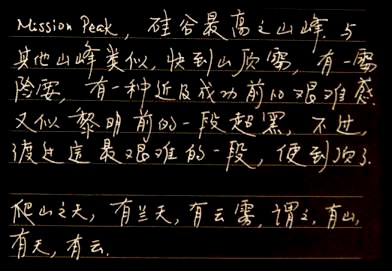 Mission Peak, 硅谷最高之山峰. 与
其他山峰类似, 快到山顶处, 有一处
险要, 有一种近及成功前的艰难感
又似黎明前的一段超黑, 不过,
渡过這最艰难的一段, 便到顶了.
爬山之天, 有兰天, 有云雾, 谓之, 有山,
有天, 有云.